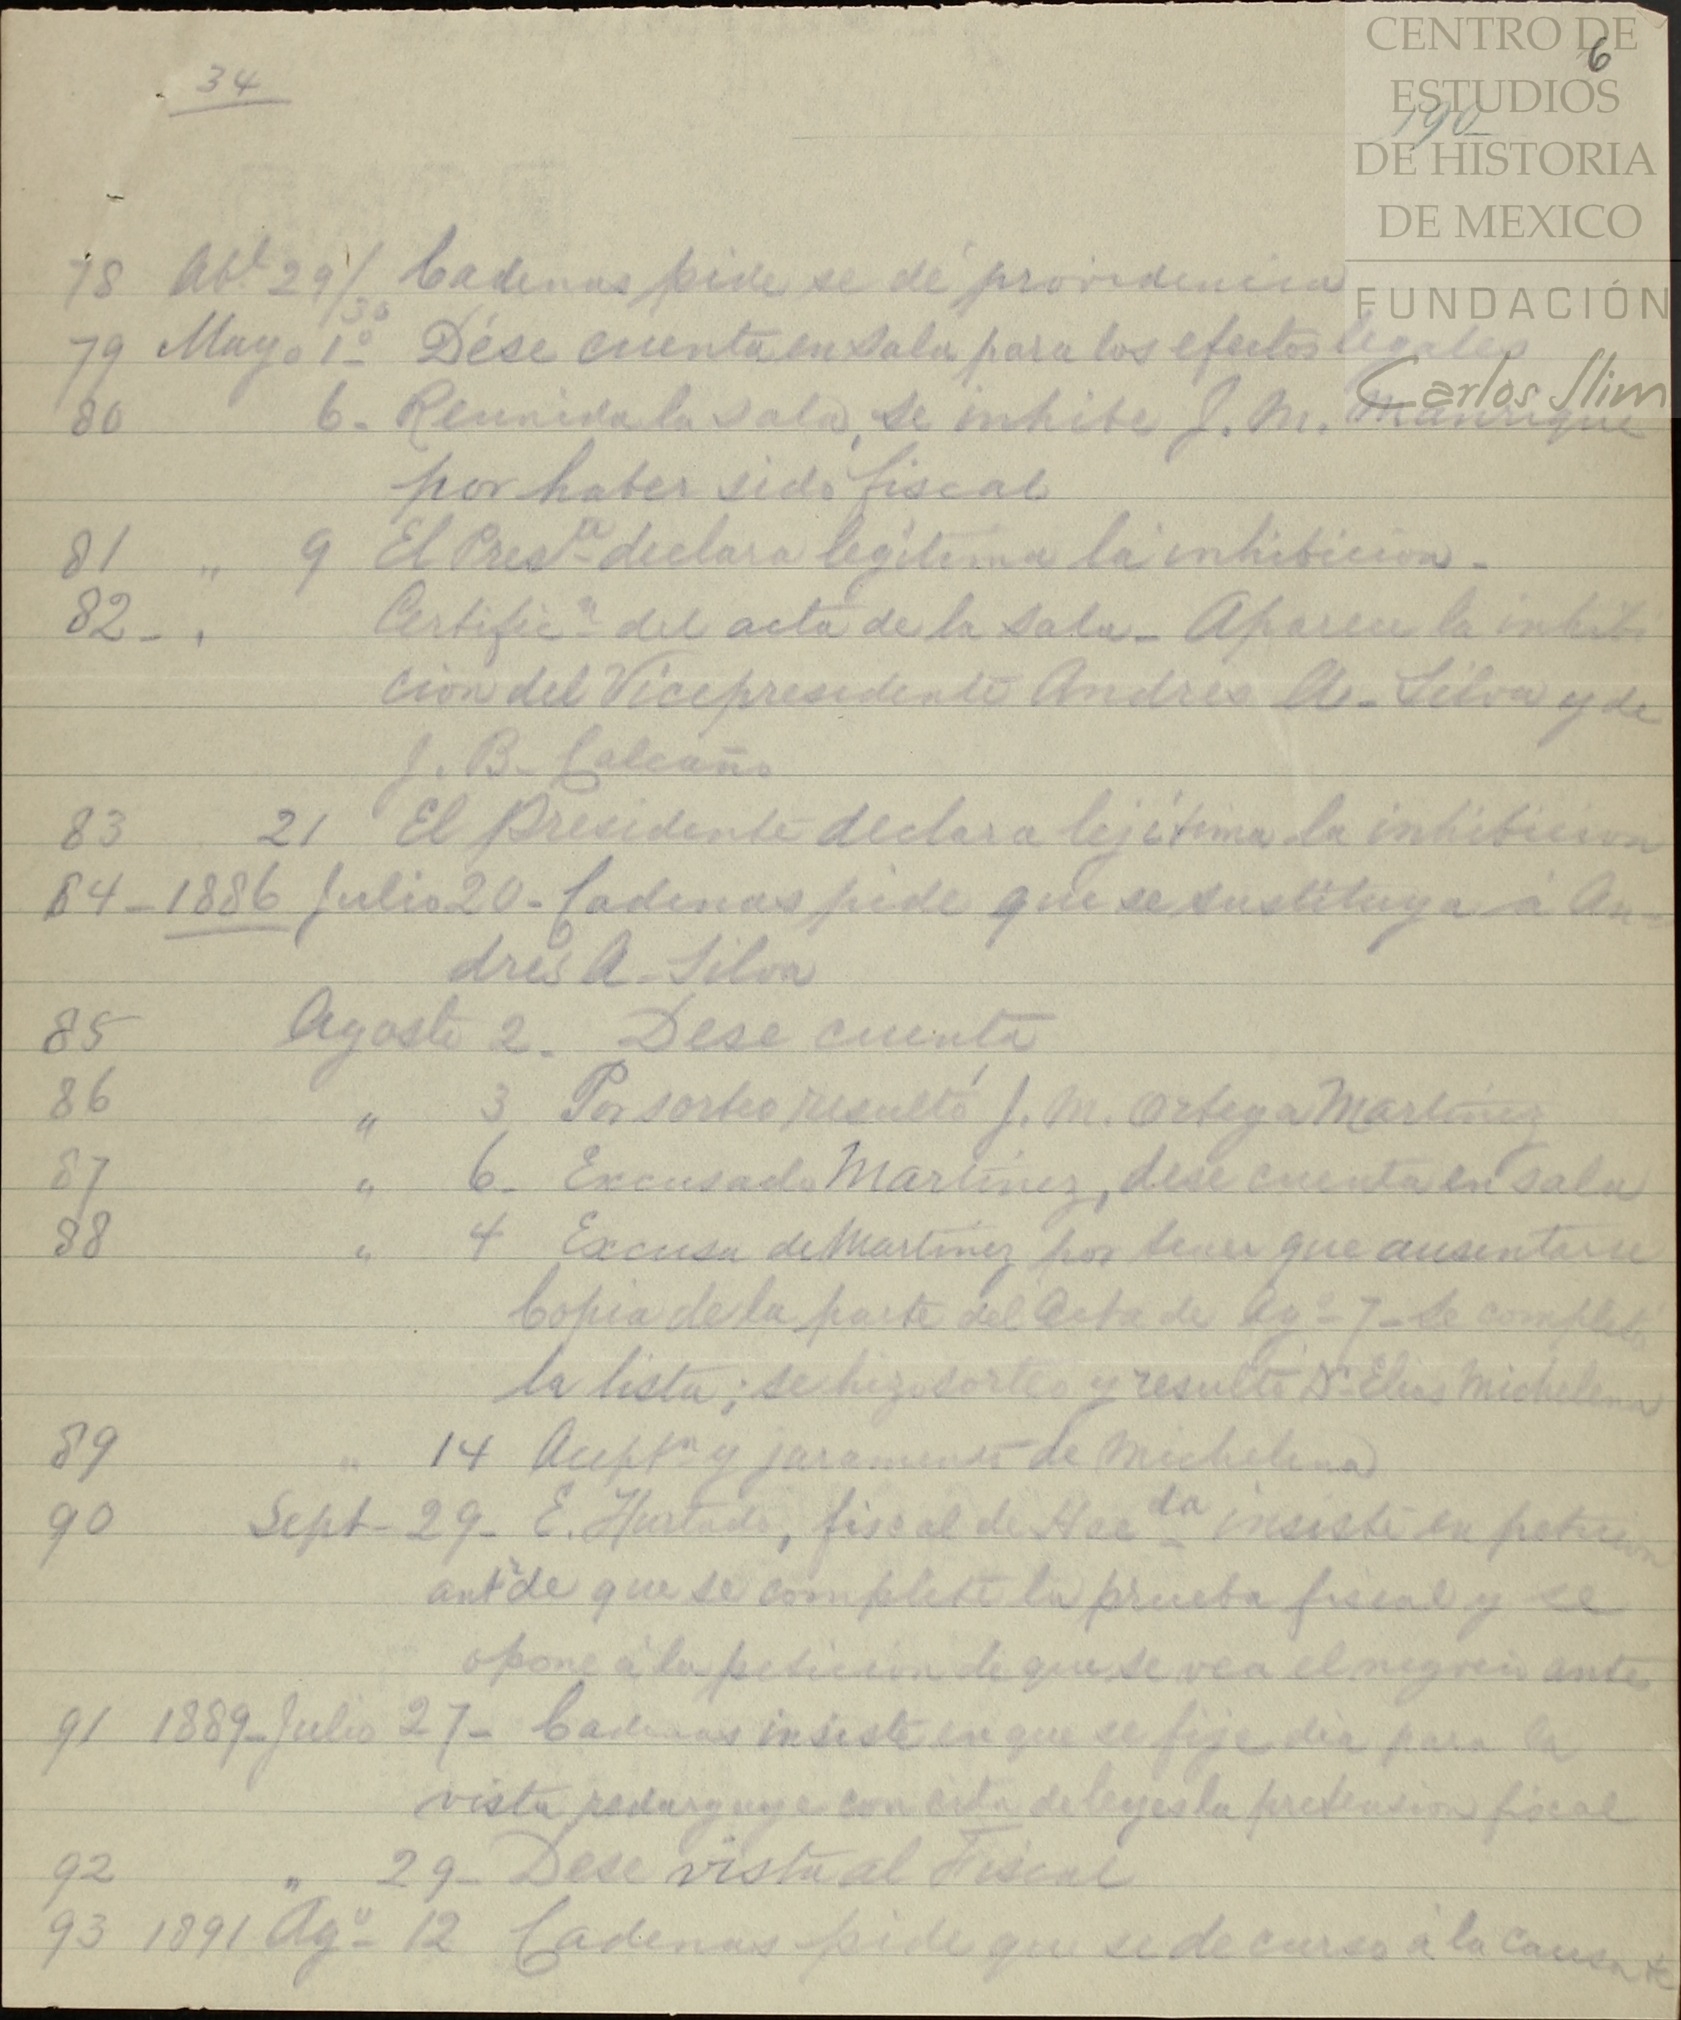 34
6
190
CENTRO DE
ESTUDIOS
DE HISTORIA
DE MEXICO
FUNDACIÓN
Carlos Slim
78 Abl. 29/30 Cadenas pide se dé providencia
79 Mayo 1º Dése cuenta en sala para los efectos legales
80 6- Reunida la sala, se inhibe J. M. Manrique
por haber sido fiscal
81 " 9 El Preste declara legítima la inhibicion-
82- " Certificn del acta de la sala- Aparece la inhibi
cion del Vicepresidente Andres A. Silva y de
J. B. Calcaño
83 21 El Presidente declara lejítima la inhibicion
84-1886 Julio 20- Cadenas pide que se sustituya á An-
drés A. Silva
85 Agosto 2. Dese cuenta
86 " 3 Por sorteo, resultó J. M. Ortega Martínez
87 " 6- Excusado Martínez, dese cuenta en sala
88 " 4 Excusa de Martínez por tener que ausentarse
Copia de la parte del Acta de Agº 7- Se completó
la lista; se hizo sorteo y resultó Dr Elias Michelena
89 " 14 Aceptn y juramento de Michelena
90 Sept- 29- E. Hurtado, fiscal de Hacda insiste en peticion
antr de que se complete la prueba fiscal y se
opone á la peticion de que se vea el negocio antes
91 1889-Julio 27- Cadenas insiste en que se fije dia para la
vista, redarguye con cita de leyes la pretension fiscal
92 " 29- Dese vista al Fiscal
93 1891 Agº- 12 Cadenas pide que se de curso á la causa &c